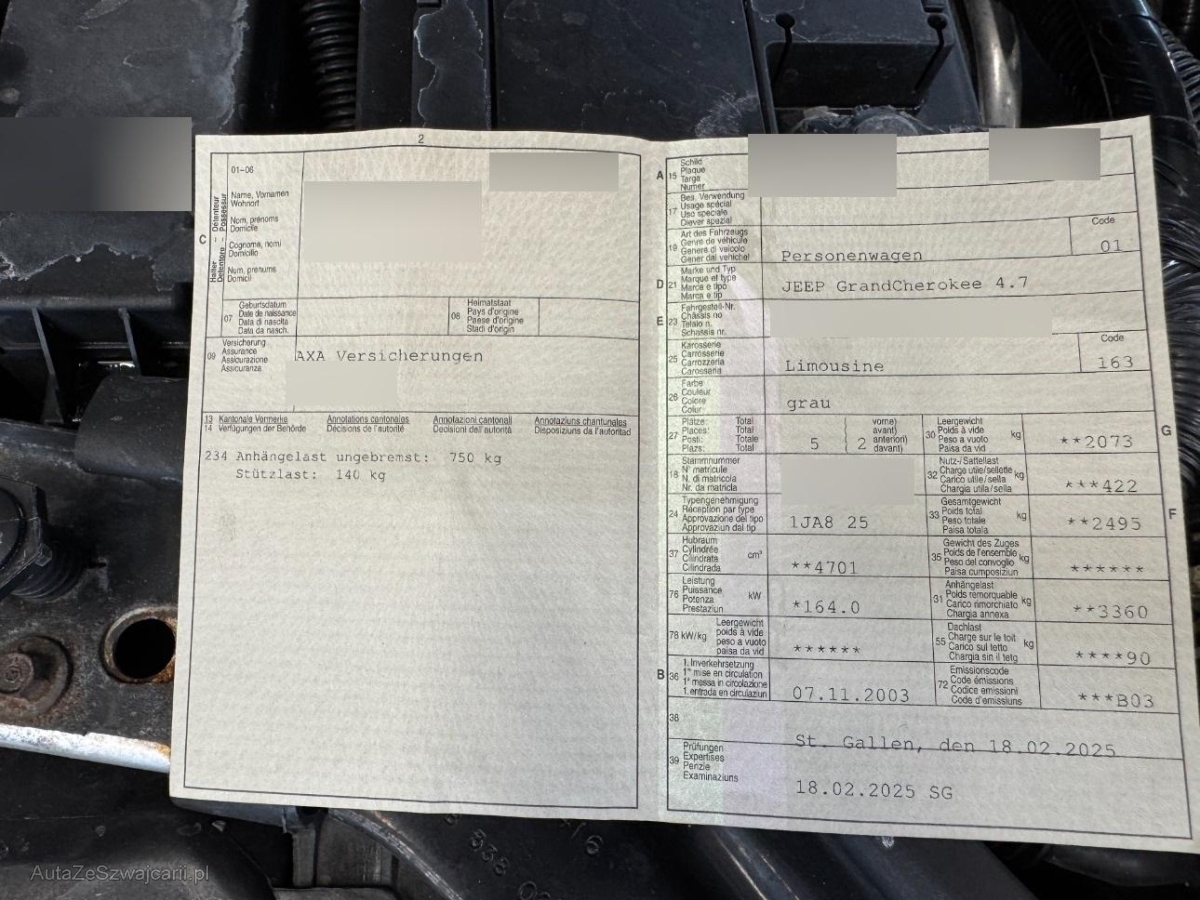 2
01–06
C
Halter – Détenteur
Detentore – Possessur
Name, Vornamen
Wohnort
Nom, prénoms
Domicile
Cognome, nomi
Domicilio
Num, prenums
Domicil
07
Geburtsdatum
Date de naissance
Data di nascita
Data da nasch.
08
Heimatstaat
Pays d'origine
Paese d'origine
Stadi d'origin
09
Versicherung
Assurance
Assicurazione
Assicuranza
AXA Versicherungen
13 Kantonale Vermerke Annotations cantonales Annotazioni cantonali Annotaziuns chantunalas
14 Verfügungen der Behörde Décisions de l'autorité Decisioni dell'autorità Disposiziuns da l'autoritad
234 Anhängelast ungebremst: 750 kg
Stützlast: 140 kg
A 15
Schild
Plaque
Targa
Numer
17
Bes. Verwendung
Usage spécial
Uso speciale
Diever spezial
19
Art des Fahrzeugs
Genre de véhicule
Genere di veicolo
Gener dal vehichel
Personenwagen
Code
01
D 21
Marke und Typ
Marque et type
Marca e tipo
Marca e tip
JEEP GrandCherokee 4.7
E 23
Fahrgestell-Nr.
Châssis no
Telaio n.
Schassis nr.
25
Karosserie
Carrosserie
Carrozzeria
Carosseria
Limousine
Code
163
26
Farbe
Couleur
Colore
Color
grau
27
Plätze: Total
Places: Total
Posti: Totale
Plazs: Total
5
vorne)
avant)
anteriori)
davant)
2
30
Leergewicht
Poids à vide
Peso a vuoto
Paisa da vid
kg
**2073
G
18
Stammnummer
N° matricule
N. di matricola
Nr. da matricla
32
Nutz-/Sattellast
Charge utile/sellette
Carico utile/sella
Chargia utila/sella
kg
***422
24
Typengenehmigung
Réception par type
Approvazione del tipo
Approvaziun dal tip
1JA8 25
33
Gesamtgewicht
Poids total
Peso totale
Paisa totala
kg
**2495
F
37
Hubraum
Cylindrée
Cilindrata
Cilindrada
cm³
**4701
35
Gewicht des Zuges
Poids de l'ensemble
Peso del convoglio
Paisa cumposiziun
kg
******
76
Leistung
Puissance
Potenza
Prestaziun
kW
*164.0
31
Anhängelast
Poids remorquable
Carico rimorchiato
Chargia annexa
kg
**3360
78 kW/kg
Leergewicht
poids à vide
peso a vuoto
paisa da vid
******
55
Dachlast
Charge sur le toit
Carico sul tetto
Chargia sin il tetg
kg
****90
B 36
1. Inverkehrsetzung
1re mise en circulation
1a messa in circolazione
1. entrada en circulaziun
07.11.2003
72
Emissionscode
Code émissions
Codice emissioni
Code d'emissiuns
***B03
38
St. Gallen, den 18.02.2025
39
Prüfungen
Expertises
Perizie
Examinaziuns
18.02.2025 SG
AutaZeSzwajcarii.pl